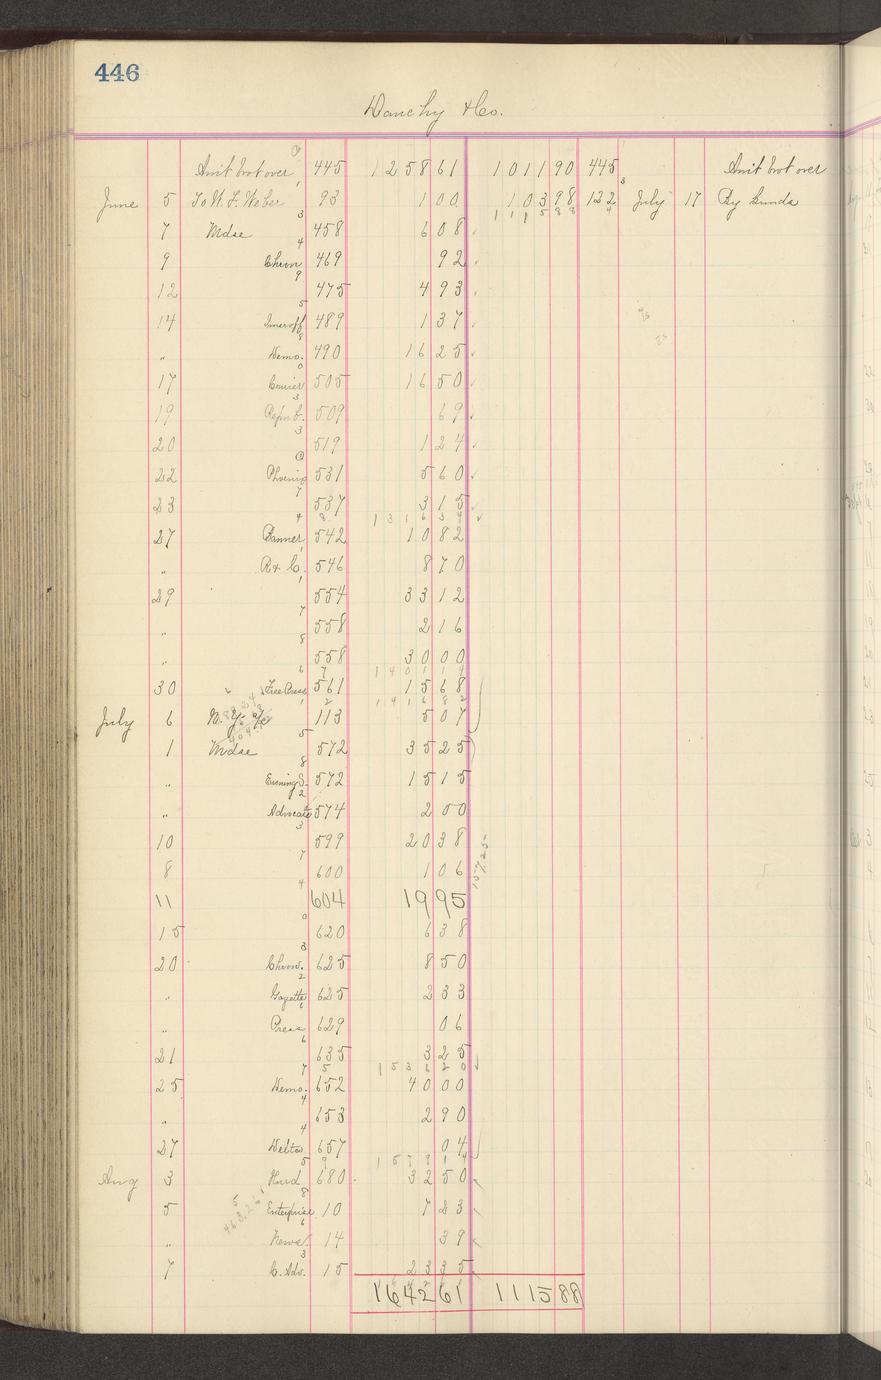 446
Danchy & Co.
Am't brot over 445 1258 61 1011 90 445 Am't brot over
June 5 To W. F. Weber 93 1 00 103 98 122 July 17 By Sunds
1115 88
7 Mdse 458 6 08
9 Chron 469 92
12 475 4 93
14 Interoff 489 1 37
" Demo. 490 16 25
17 Courier 505 16 50
19 Repub. 509 69
20 519 1 24
22 Phoenix 531 5 60
23 537 3 15
1316 34
27 Banner 542 10 82
" R & C. 546 8 70
29 554 33 12
" 558 2 16
" 558 30 00
1401 14
30 Free Press 561 15 68
1416 82
July 6 N. Y. o/c 113 5 07
1 Mdse 572 35 25
" Evening S. 572 15 15
" Advocate 574 2 00
10 599 20 38
8 600 1 06
11 604 19 95
15 620 6 38
20 Chron. 625 8 50
" Gazette 625 2 33
" Press 629 06
21 635 3 25
1536 20
25 Demo. 652 40 00
" 653 2 90
27 Delta 657 04
1579 14
Aug 3 680 32 50
5 Enterprise 10 7 23
" News 14 39
7 C. Adv. 15 23 35
1642 61 1115 88